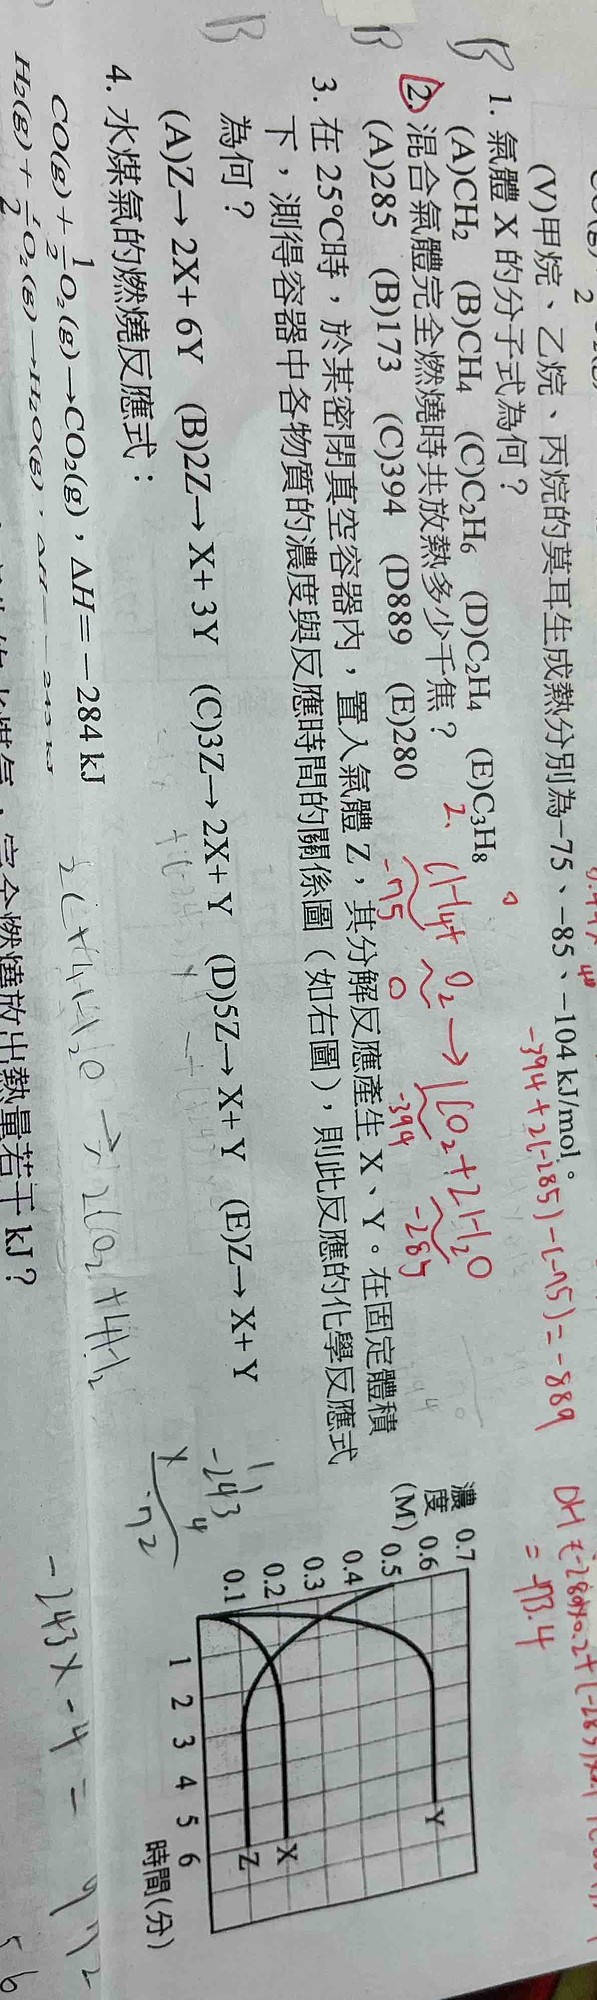 (V)甲烷、乙烷、丙烷的莫耳生成熱分別為-75、-85、-104 kJ/mol。
1. 氣體 X 的分子式為何？
(A)CH₂ (B)CH₄ (C)C₂H₆ (D)C₂H₄ (E)C₃H₈
2. 混合氣體完全燃燒時共放熱多少千焦？
(A)285 (B)173 (C)394 (D889 (E)280
3. 在 25℃時，於某密閉真空容器內，置入氣體 Z，其分解反應產生 X、Y。在固定體積
下，測得容器中各物質的濃度與反應時間的關係圖（如右圖），則此反應的化學反應式
為何？
(A)Z→ 2X+ 6Y (B)2Z→ X+ 3Y (C)3Z→ 2X+ Y (D)5Z→ X+ Y (E)Z→ X+ Y
4. 水煤氣的燃燒反應式：
CO(g)+½O₂(g)→CO₂(g)，ΔH=-284 kJ
H₂(g)+½O₂(g)→H₂O(g)，ΔH=-243 kJ
完全燃燒放出熱量若干 kJ？
B
B
B
-394+2(-285)-(-75)=-889
2、CH₄+O₂→CO₂+2H₂O
-75 0 -394 -285
2C+4H₂O→2CO₂+4H₂
-243
4
-243×-4=
濃度(M)
0.7
0.6
0.5
0.4
0.3
0.2
0.1
Y
X
Z
1 2 3 4 5 6
時間(分)